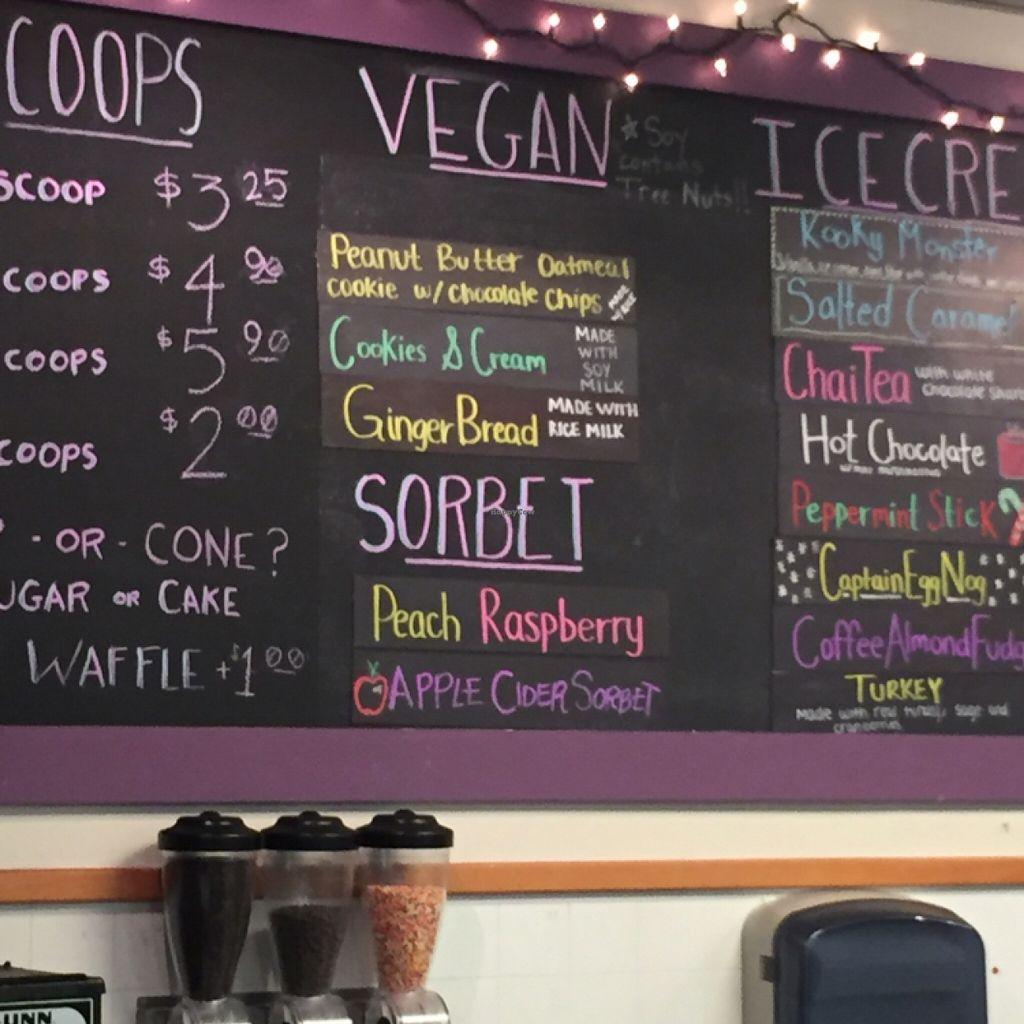 COOPS
SCOOP $3.25
COOPS $4.90
COOPS $5.90
COOPS $2.00
- OR - CONE?
UGAR OR CAKE
WAFFLE +$1.00
VEGAN
* Soy
contains
Tree Nuts!!
Peanut Butter Oatmeal
cookie w/ chocolate chips
MADE W/ RICE
Cookies & Cream
MADE
WITH
SOY
MILK
GingerBread
MADE WITH
RICE MILK
SORBET
Peach Raspberry
APPLE CIDER SORBET
ICE CRE
Kooky Monster
Salted Caramel
Chai Tea
with white
chocolate
Hot Chocolate
Peppermint Stick
Captain Egg Nog
Coffee Almond Fudg
TURKEY
Made with real turkey, sage and
cranberries
HappyCow
UNN